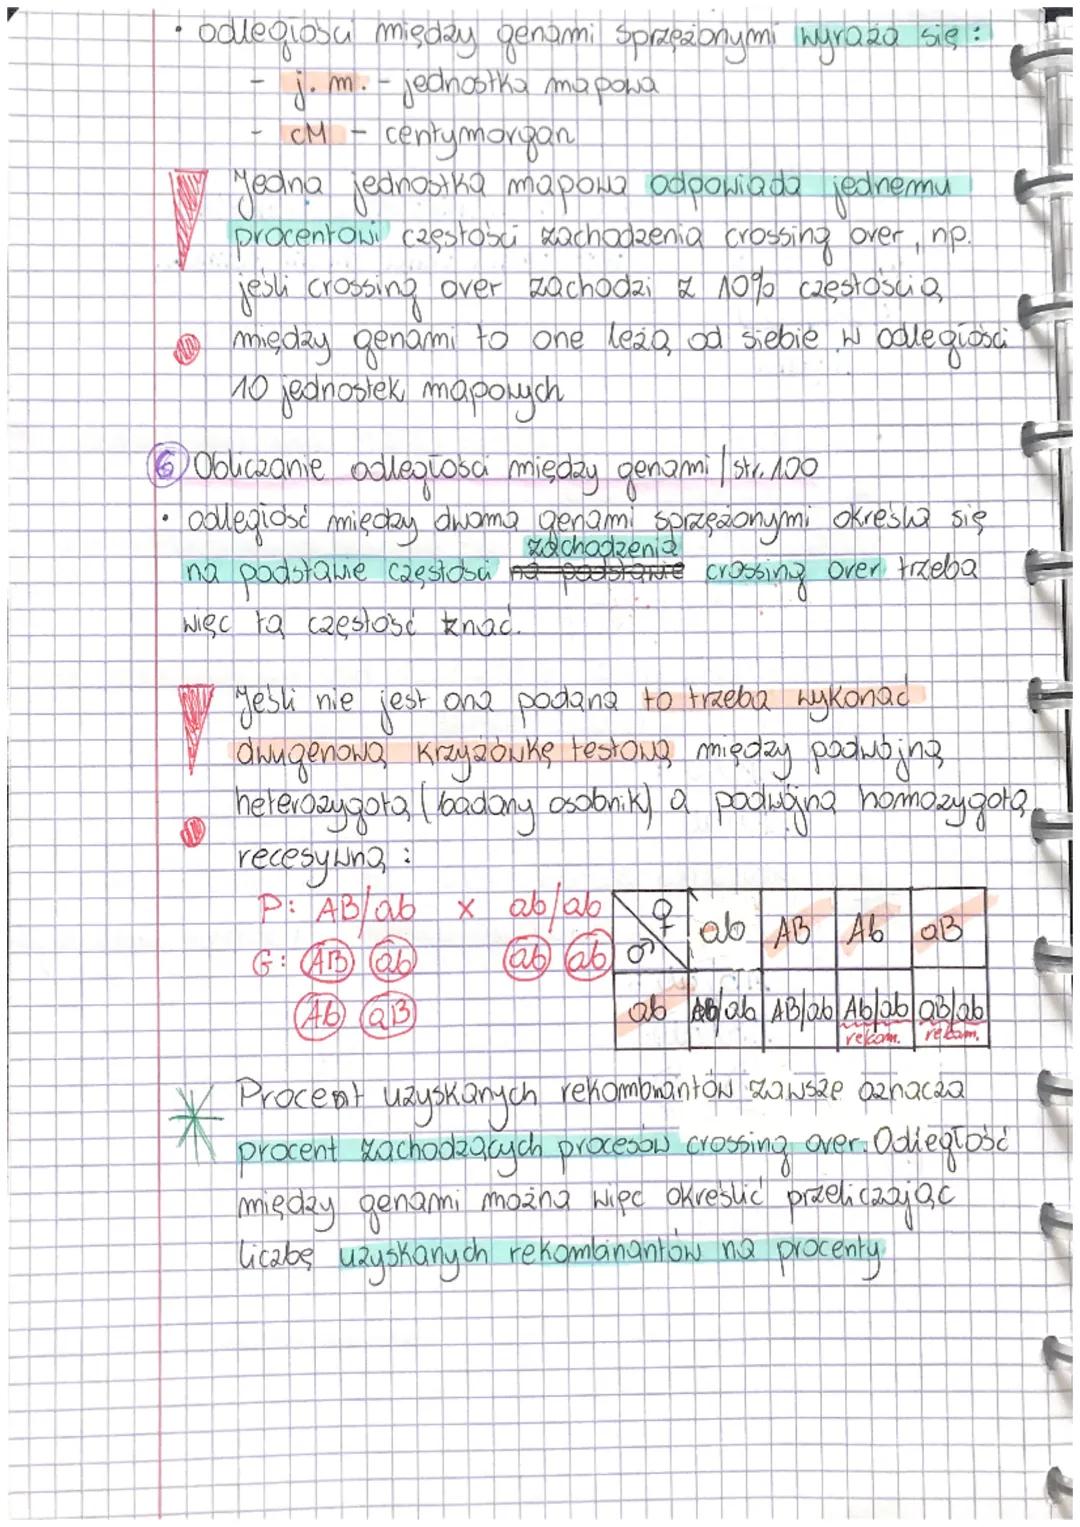 • odległości między genami sprzężonymi wyraża się:
- j. m. - jednostka mapowa
- cM - centymorgan
Jedna jednostka mapowa odpowiada jednemu
procentowi częstości zachodzenia crossing over, np.
jeśli crossing over zachodzi z 10% częstością
między genami to one leżą od siebie w odległości
10 jednostek mapowych
6 Obliczanie odległości między genami / str. 100
• odległość między dwoma genami sprzężonymi określa się
zachodzenia
na podstawie częstości na podstawie crossing over trzeba
więc tą częstość znać.
Jeśli nie jest ona podana to trzeba wykonać
dwugenową krzyżówkę testową między podwójną
heterozygotą (badany osobnik) a podwójną homozygotą
recesywną:
P: AB/ab x ab/ab
G: AB ab ab ab
Ab aB
♀ ♂ ab AB Ab aB
ab ab/ab AB/ab Ab/ab aB/ab
rekom. rekom.
Procent uzyskanych rekombinantów zawsze oznacza
procent zachodzących procesów crossing over. Odległość
między genami można więc określić przeliczając
liczbę uzyskanych rekombinantów na procenty